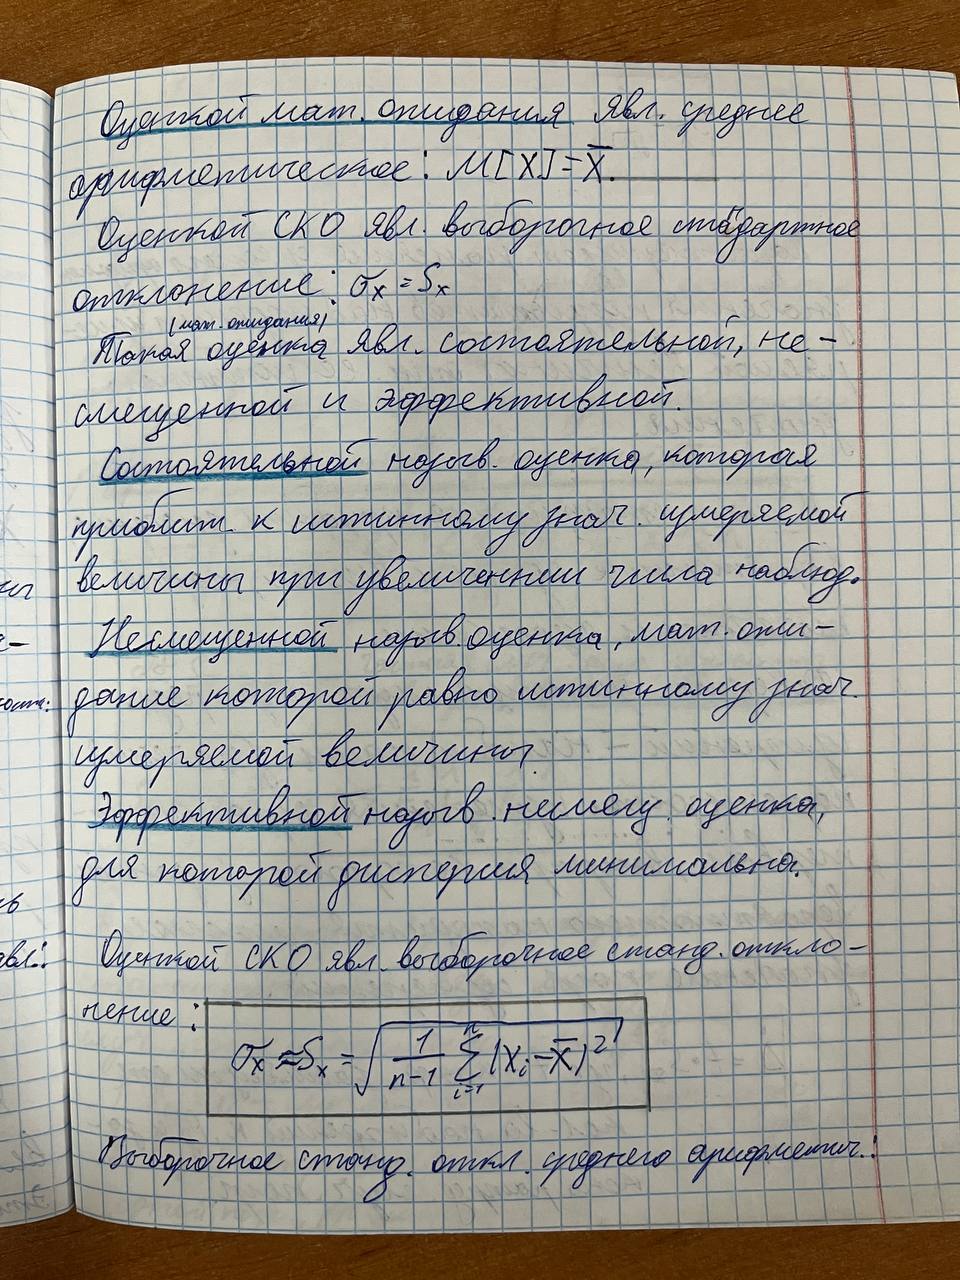 Оценкой мат. ожидания явл. среднее
арифметическое: M[X]=X̄.
Оценкой СКО явл. выборочное стандартное
отклонение: σx = Sx
(мат. ожидания)
Такая оценка явл. состоятельной, не-
смещенной и эффективной.
Состоятельной назыв. оценка, которая
приближ. к истинному знач. измеряемой
величины при увеличении числа наблюд.
Несмещенной назыв. оценка, мат. ожи-
дание которой равно истинному знач.
измеряемой величины.
Эффективной назыв. несмещ. оценка,
для которой дисперсия минимальна.
Оценкой СКО явл. выборочное станд. откло-
нение:
σx ≈ Sx = √(1/(n-1) Σ_{i=1}^{n} (Xi - X̄)²)
Выборочное станд. откл. среднего арифметич.:
явл.: